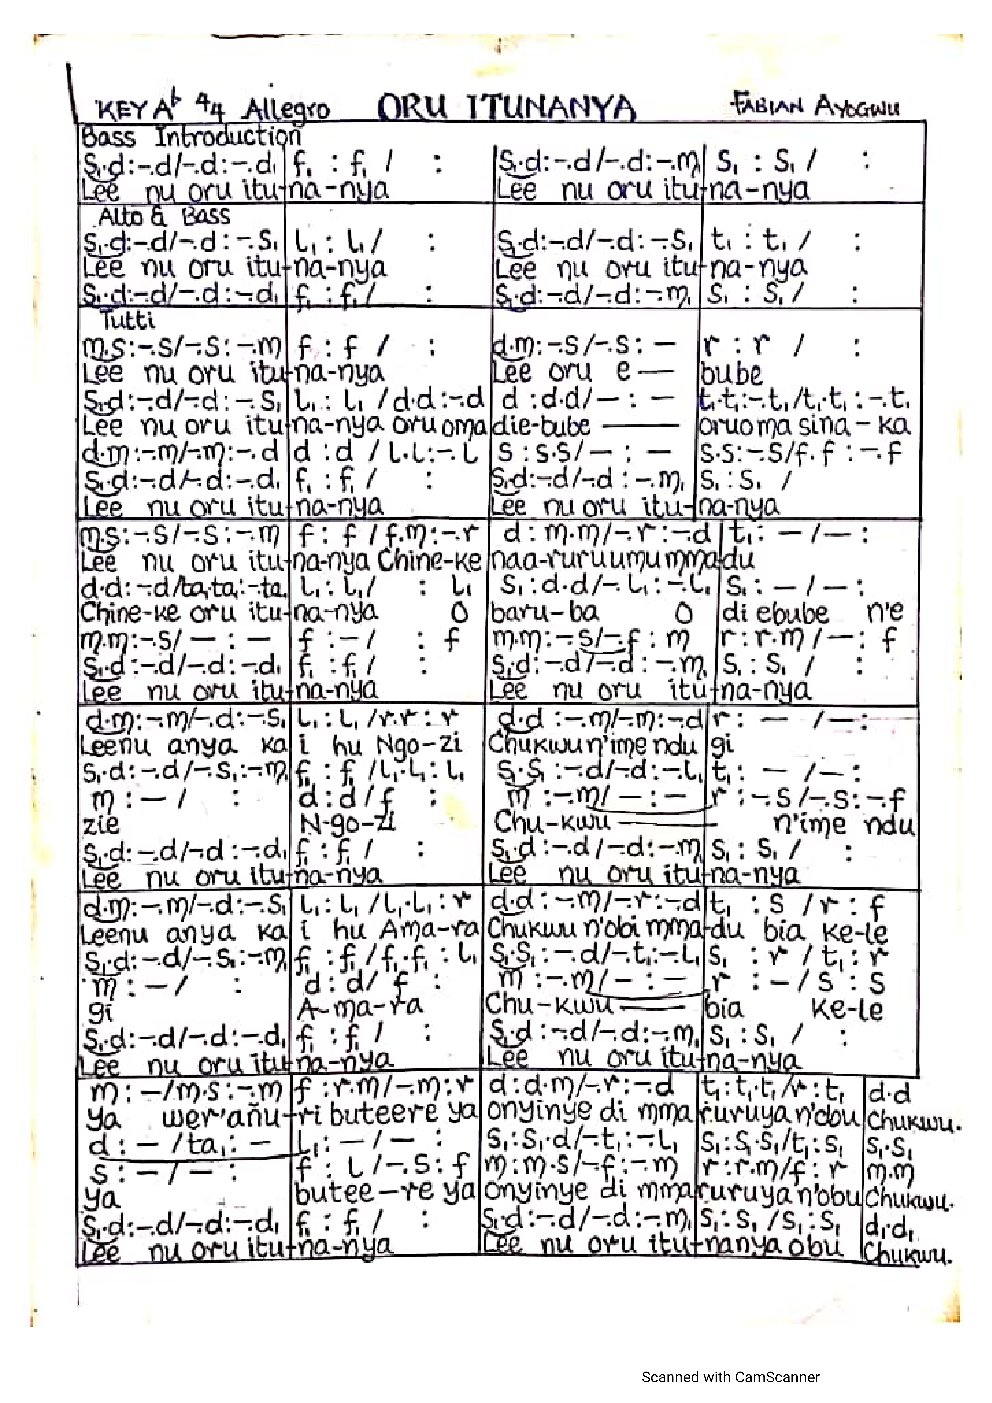 KEY A♭ 4/4 Allegro ORU ITUNANYA FABIAN AYOGWU
Bass Introduction
S₁.d:-.d/-.d:-.d₁ | f₁ : f₁ / : | S₁.d:-.d/-.d:-.m₁ | S₁ : S₁ / :
Lee nu oru itu-na-nya Lee nu oru itu-na-nya
Alto & Bass
S₁.d:-.d/-.d:-.S₁ | L₁ : L₁ / : | S₁.d:-.d/-.d:-.S₁ | t₁ : t₁ / :
Lee nu oru itu-na-nya Lee nu oru itu-na-nya
S₁.d:-.d/-.d:-.d₁ | f₁ : f₁ / : | S₁.d:-.d/-.d:-.m₁ | S₁ : S₁ / :
Tutti
m.s:-.s/-.s:-.m | f : f / : | d.m:-.s/-.s: — | r : r / :
Lee nu oru itu-na-nya Lee oru e — bube
S₁.d:-.d/-.d:-.S₁ | L₁ : L₁ / d.d:-.d | d : d.d/ — : — | t₁.t₁:-.t₁/t₁.t₁:-.t₁
Lee nu oru itu-na-nya oru oma die-bube —— oruoma sina-ka
d.m:-.m/-.m:-.d | d : d / L.L:-.L | s : s.s/ — : — | s.s:-.s/f.f:-.f
S₁.d:-.d/-.d:-.d₁ | f₁ : f₁ / : | S₁.d:-.d/-.d:-.m₁ | S₁ : S₁ /
Lee nu oru itu-na-nya Lee nu oru itu-na-nya
m.s:-.s/-.s:-.m | f : f / f.m:-.r | d : m.m/-.r:-.d | t₁ : — / — :
Lee nu oru itu-na-nya Chine-ke naa-ruruumummadu
d.d:-.d/ta₁.ta₁:-.ta₁ | L₁ : L₁ / : L₁ | S₁ : d.d/-.L₁:-.L₁ | S₁ : — / — :
Chine-ke oru itu-na-nya O baru-ba O di ebube n'e
m.m:-.s/ — : — | f : — / : f | m.m:-.s/-.f : m | r : r.m / — : f
S₁.d:-.d/-.d:-.d₁ | f₁ : f₁ / : | S₁.d:-.d/-.d:-.m₁ | S₁ : S₁ / :
Lee nu oru itu-na-nya Lee nu oru itu-na-nya
d.m:-.m/-.d:-.S₁ | L₁ : L₁ / r.r : r | d.d:-.m/-.m:-.d | r : — / — :
Leenu anya ka i hu Ngo-zi Chukwu n'ime ndu gi
S₁.d:-.d/-.S₁:-.m₁ | f₁ : f₁ / L₁.L₁ : L₁ | S₁.S₁:-.d/-.d:-.L₁ | t₁ : — / — :
m : — / : | d : d / f : | m :-.m/ — : — | r :-.s/-.s:-.f
zie N-go-zi Chu-kwu —— n'ime ndu
S₁.d:-.d/-.d:-.d₁ | f₁ : f₁ / : | S₁.d:-.d/-.d:-.m₁ | S₁ : S₁ / :
Lee nu oru itu-na-nya Lee nu oru itu-na-nya
d.m:-.m/-.d:-.S₁ | L₁ : L₁ / L₁.L₁ : r | d.d:-.m/-.r:-.d | t₁ : s / r : f
Leenu anya ka i hu Ama-ra Chukwu n'obi mma-du bia ke-le
S₁.d:-.d/-.S₁:-.m₁ | f₁ : f₁ / f₁.f₁ : L₁ | S₁.S₁:-.d/-.t₁:-.L₁ | S₁ : r / t₁ : r
m : — / : | d : d / f : | m :-.m/ — : — | r : — / s : s
gi A-ma-ra Chu-kwu —— bia ke-le
S₁.d:-.d/-.d:-.d₁ | f₁ : f₁ / : | S₁.d:-.d/-.d:-.m₁ | S₁ : S₁ / :
Lee nu oru itu-na-nya Lee nu oru itu-na-nya
m : — / m.s:-.m | f : r.m/-.m : r | d : d.m/-.r:-.d | t₁ : t₁.t₁/r : t₁ | d.d
ya wer'añu-ri buteere ya onyinye di mma ruruya n'obu Chukwu.
d : — / ta₁ : — | L₁ : — / — : | S₁ : S₁.d/-.t₁:-.L₁ | S₁ : S₁.S₁/t₁ : S₁ | S₁.S₁
s : — / — : | f : L/-.s : f | m : m.s/-.f:-.m | r : r.m/f : r | m.m
ya butee-re ya onyinye di mma ruruya n'obu Chukwu.
S₁.d:-.d/-.d:-.d₁ | f₁ : f₁ / : | S₁.d:-.d/-.d:-.m₁ | S₁ : S₁ / S₁ : S₁ | d₁.d₁
Lee nu oru itu-na-nya Lee nu oru itu-nanya obu Chukwu.
Scanned with CamScanner